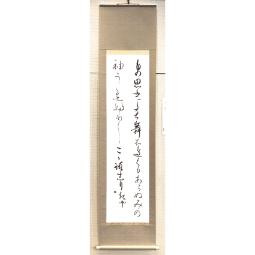 もの思ふにたち舞ふべくもあらぬみの
袖うちふりしこゝろしりきや